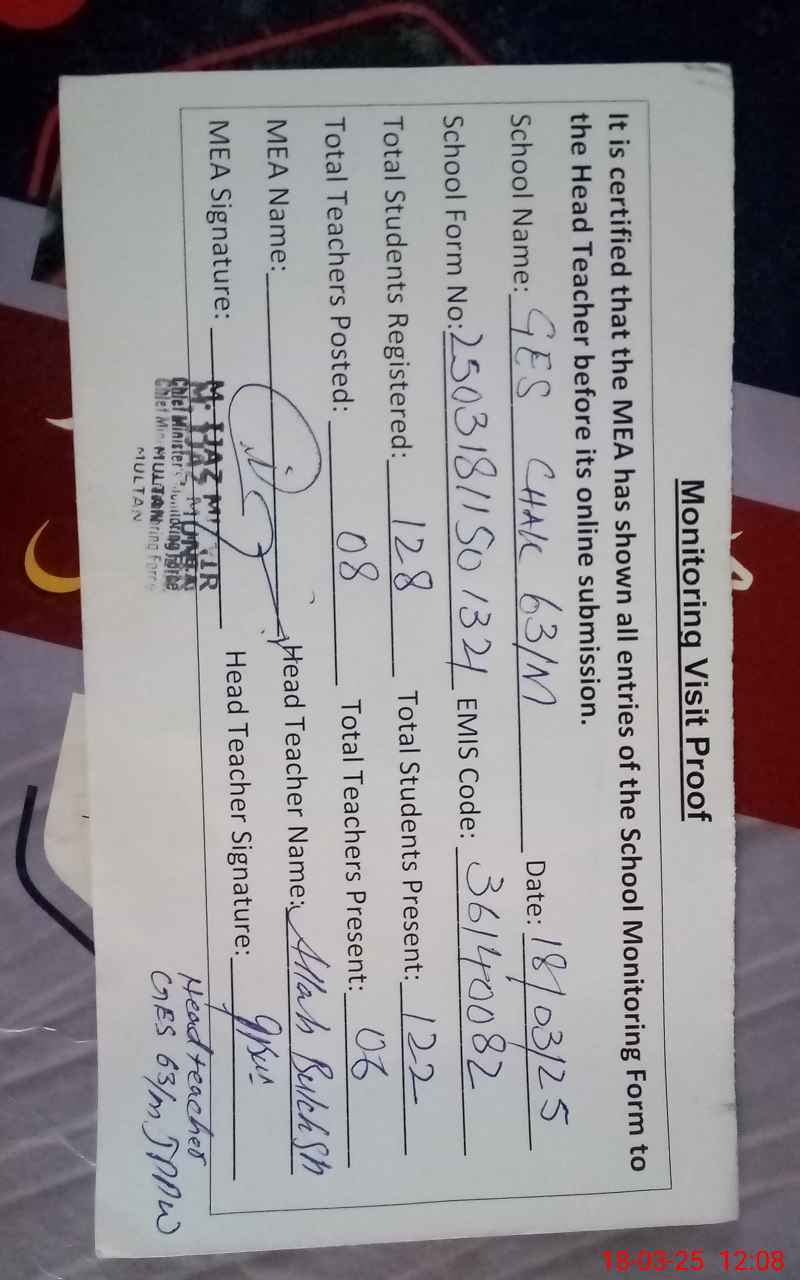 Monitoring Visit Proof
It is certified that the MEA has shown all entries of the School Monitoring Form to
the Head Teacher before its online submission.
School Name: GES CHAK 63/M Date: 18/03/25
School Form No: 25031811501321 EMIS Code: 36140082
Total Students Registered: 128 Total Students Present: 122
Total Teachers Posted: 08 Total Teachers Present: 06
MEA Name: Head Teacher Name: Allah Bukhsh
MEA Signature: Head Teacher Signature:
M. IJAZ MUNIR
Chief Minister's Monitoring Force
MULTAN
MULTAN
Head teacher
GES 63/M
18-03-25 12:08